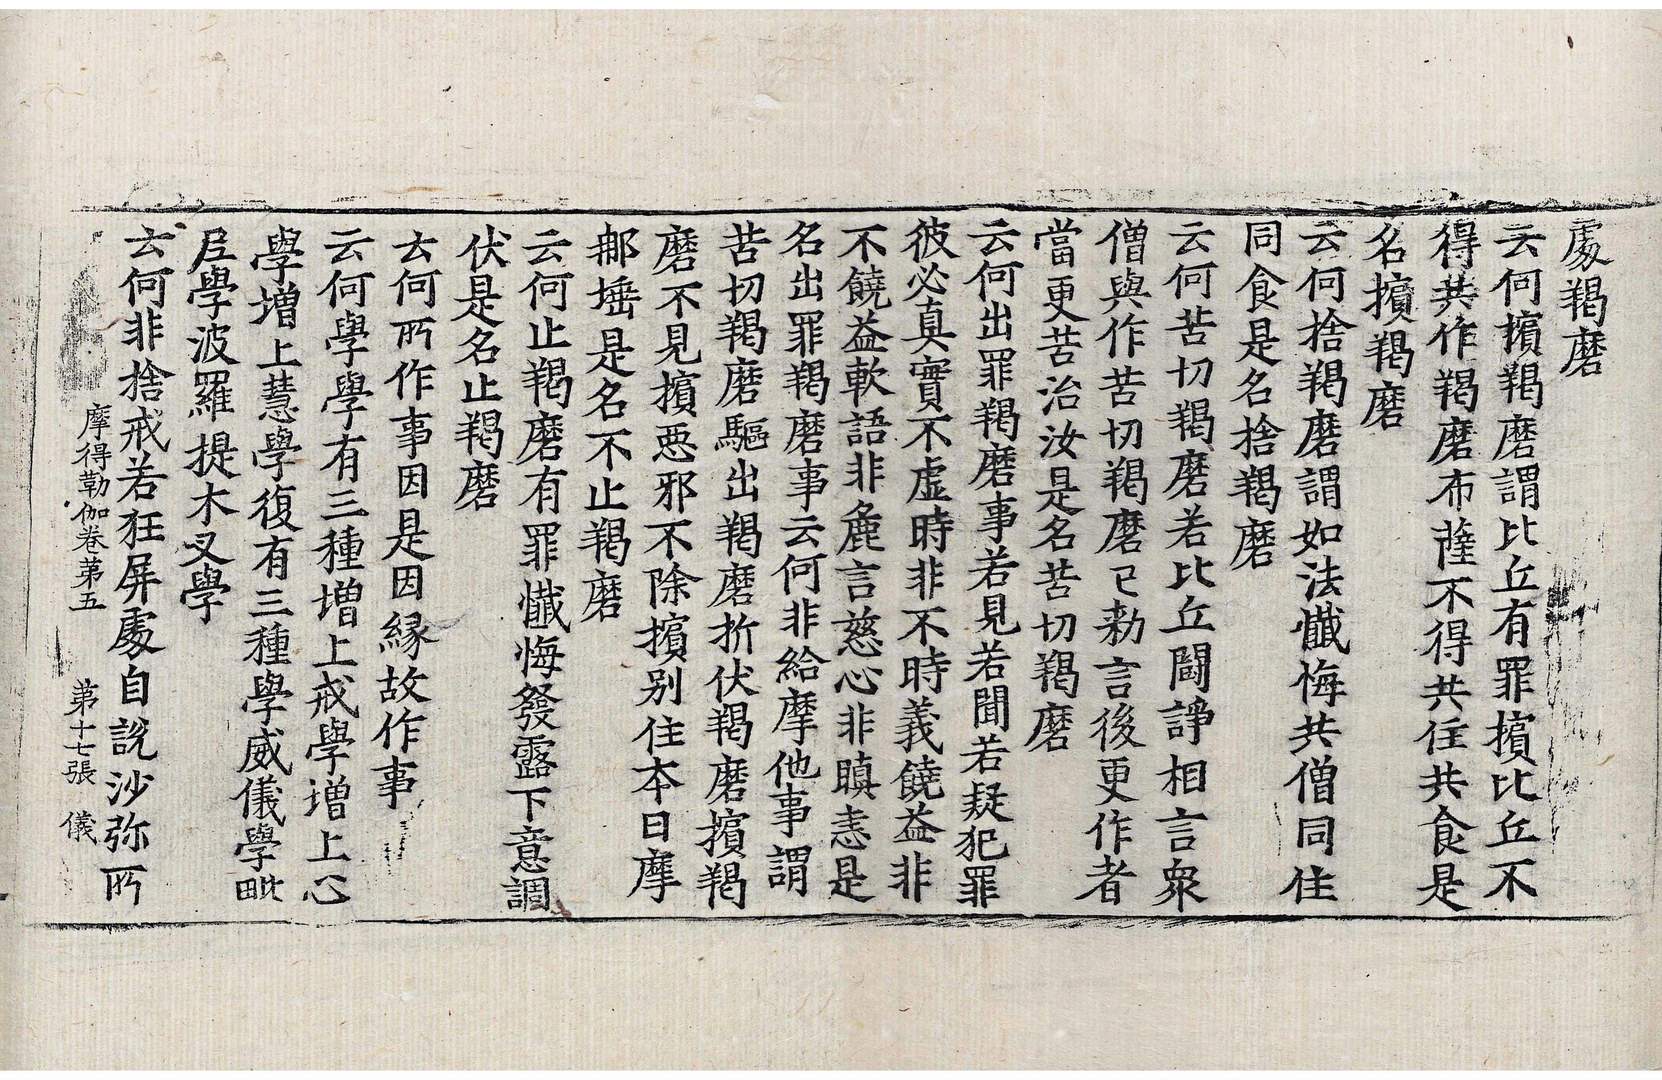 處羯磨
云何擯羯磨謂比丘有罪擯比丘不
得共作羯磨布薩不得共住共食是
名擯羯磨
云何捨羯磨謂如法懺悔共僧同住
同食是名捨羯磨
云何苦切羯磨若比丘鬪諍相言衆
僧與作苦切羯磨已勑言後更作者
當更苦治汝是名苦切羯磨
云何出罪羯磨事若見若聞若疑犯罪
彼必真實不虛時非不時義饒益非
不饒益軟語非麁言慈心非瞋恚是
名出罪羯磨事云何非給摩他事謂
苦切羯磨驅出羯磨折伏羯磨擯羯
磨不見擯惡邪不除擯別住本日摩
那埵是名不止羯磨
云何止羯磨有罪懺悔發露下意調
伏是名止羯磨
云何所作事因是因緣故作事
云何學學有三種增上戒學增上心
學增上慧學復有三種學威儀學毗
尼學波羅提木叉學
云何非捨戒若狂屏處自說沙弥所
摩得勒伽卷第五 第十七張 儀